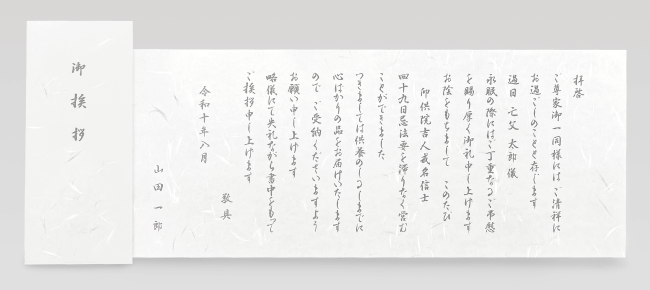 御挨拶
拝啓
ご尊家御一同様には ご清祥に
お過ごしのことと存じます
過日 亡父 太郎 儀
永眠の際にはご丁重なるご弔慰
を賜り厚く御礼申し上げます
お陰をもちまして このたび
戒名信士
四十九日忌法要を滞りなく営む
ことができました
つきましては供養のしるしまでに
心ばかりの品をお届けいたします
ので ご受納くださいますよう
お願い申し上げます
略儀にて失礼ながら書中をもって
ご挨拶申し上げます
敬具
令和十年八月
山田 一郎